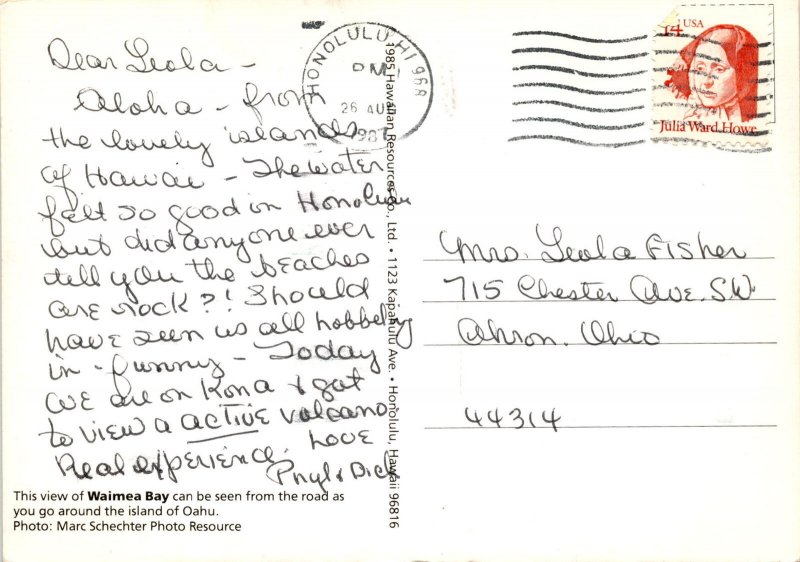 Dear Leola -
Aloha - from
the lovely islands
of Hawaii - The water
felt so good in Honolulu
but did anyone ever
tell you the beaches
are rock?! Should
have seen us all hobbeling
in - funny - Today
we are on Kona & got
to view a active volcano
Real experience.
Love
Phyl & Dick
This view of Waimea Bay can be seen from the road as
you go around the island of Oahu.
Photo: Marc Schechter Photo Resource
1985 Hawaiian Resources Co., Ltd. • 1123 Kapahulu Ave. • Honolulu, Hawaii 96816
HONOLULU HI 968
PM
26 AUG
1987
14 USA
Julia Ward Howe
Mrs. Leola Fisher
715 Chester Ave. SW
Akron. Ohio
44314